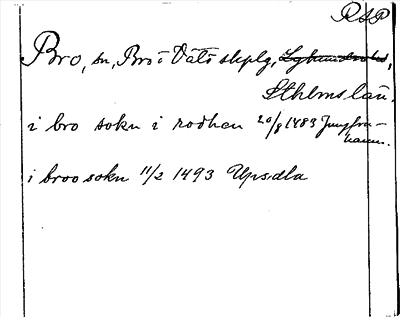 RSP
Bro, sn, Bro o Vätö skplg,
Sthlms län.
i bro sokn i rodhen 20/8 1483 Jungfru-
hamn.
i broo sokn 11/2 1493 Upsala